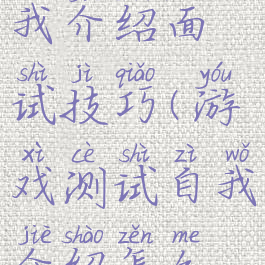 我介绍面
shì jì qiǎo yóu
试技巧(游
xì cè shì zì wǒ
戏测试自我
jiè shào zěn me
介绍怎么